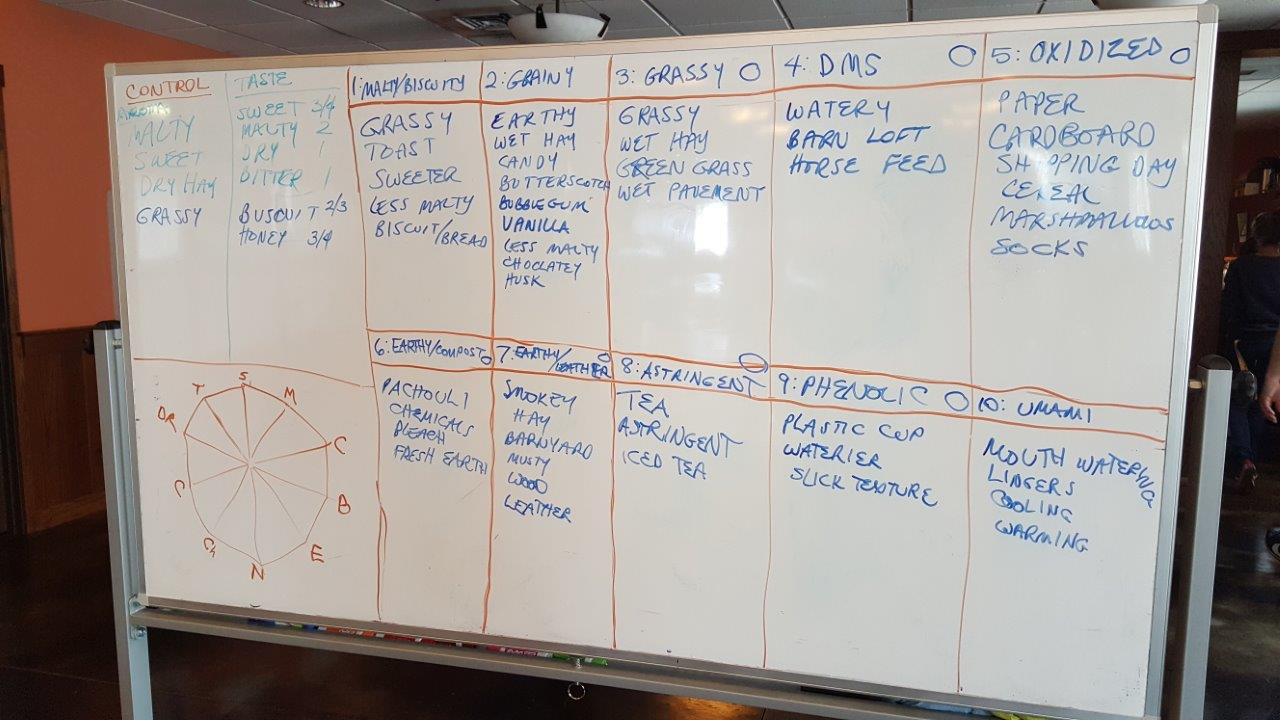 CONTROL
AROMA
MALTY
SWEET
DRY HAY
GRASSY
TASTE
SWEET 3/4
MALTY 2
DRY 1
BITTER 1
BUSCUIT 2/3
HONEY 3/4
1: MALTY/BISCUITY
GRASSY
TOAST
SWEETER
LESS MALTY
BISCUIT/BREAD
2: GRAINY
EARTHY
WET HAY
CANDY
BUTTERSCOTCH
BUBBLEGUM
VANILLA
LESS MALTY
CHOCLATEY
HUSK
3: GRASSY O
GRASSY
WET HAY
GREEN GRASS
WET PAVEMENT
4: DMS O
WATERY
BARN LOFT
HORSE FEED
5: OXIDIZED O
PAPER
CARDBOARD
SHIPPING DAY
CEREAL
MARSHMALLOWS
SOCKS
6: EARTHY/COMPOST O
PACHOULI
CHEMICALS
BLEACH
FRESH EARTH
7: EARTHY/LEATHER O
SMOKEY
HAY
BARNYARD
MUSTY
WOOD
LEATHER
8: ASTRINGENT O
TEA
ASTRINGENT
ICED TEA
9: PHENOLIC O
PLASTIC CUP
WATERIER
SLICK TEXTURE
10: UMAMI
MOUTH WATERING
LINGERS
COOLING
WARMING
S
M
C
B
E
N
T